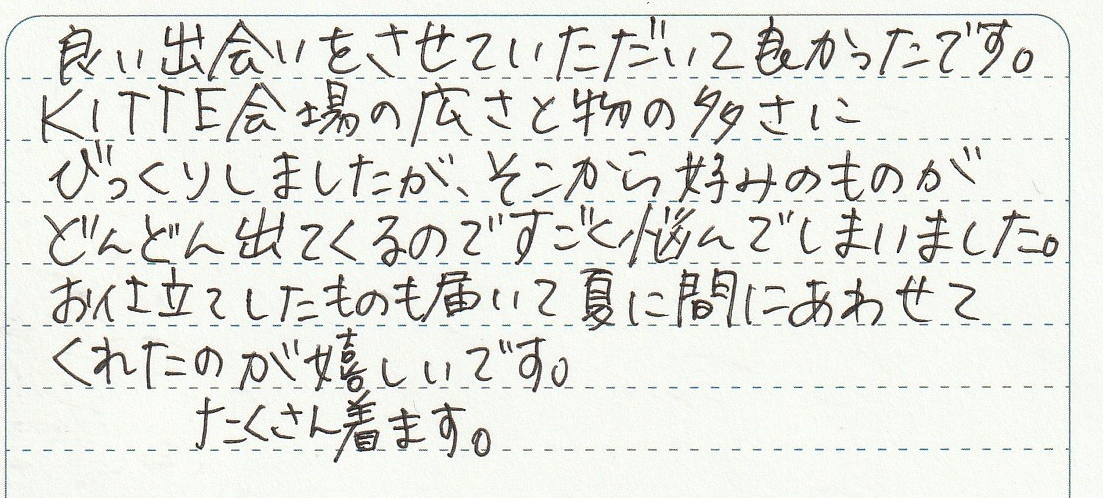 良い出会いをさせていただいて良かったです。
KITTE会場の広さと物の多さに
びっくりしましたが、そこから好みのものが
どんどん出てくるのですごく悩んでしまいました。
お仕立てしたものも届いて夏に間にあわせて
くれたのが嬉しいです。
たくさん着ます。